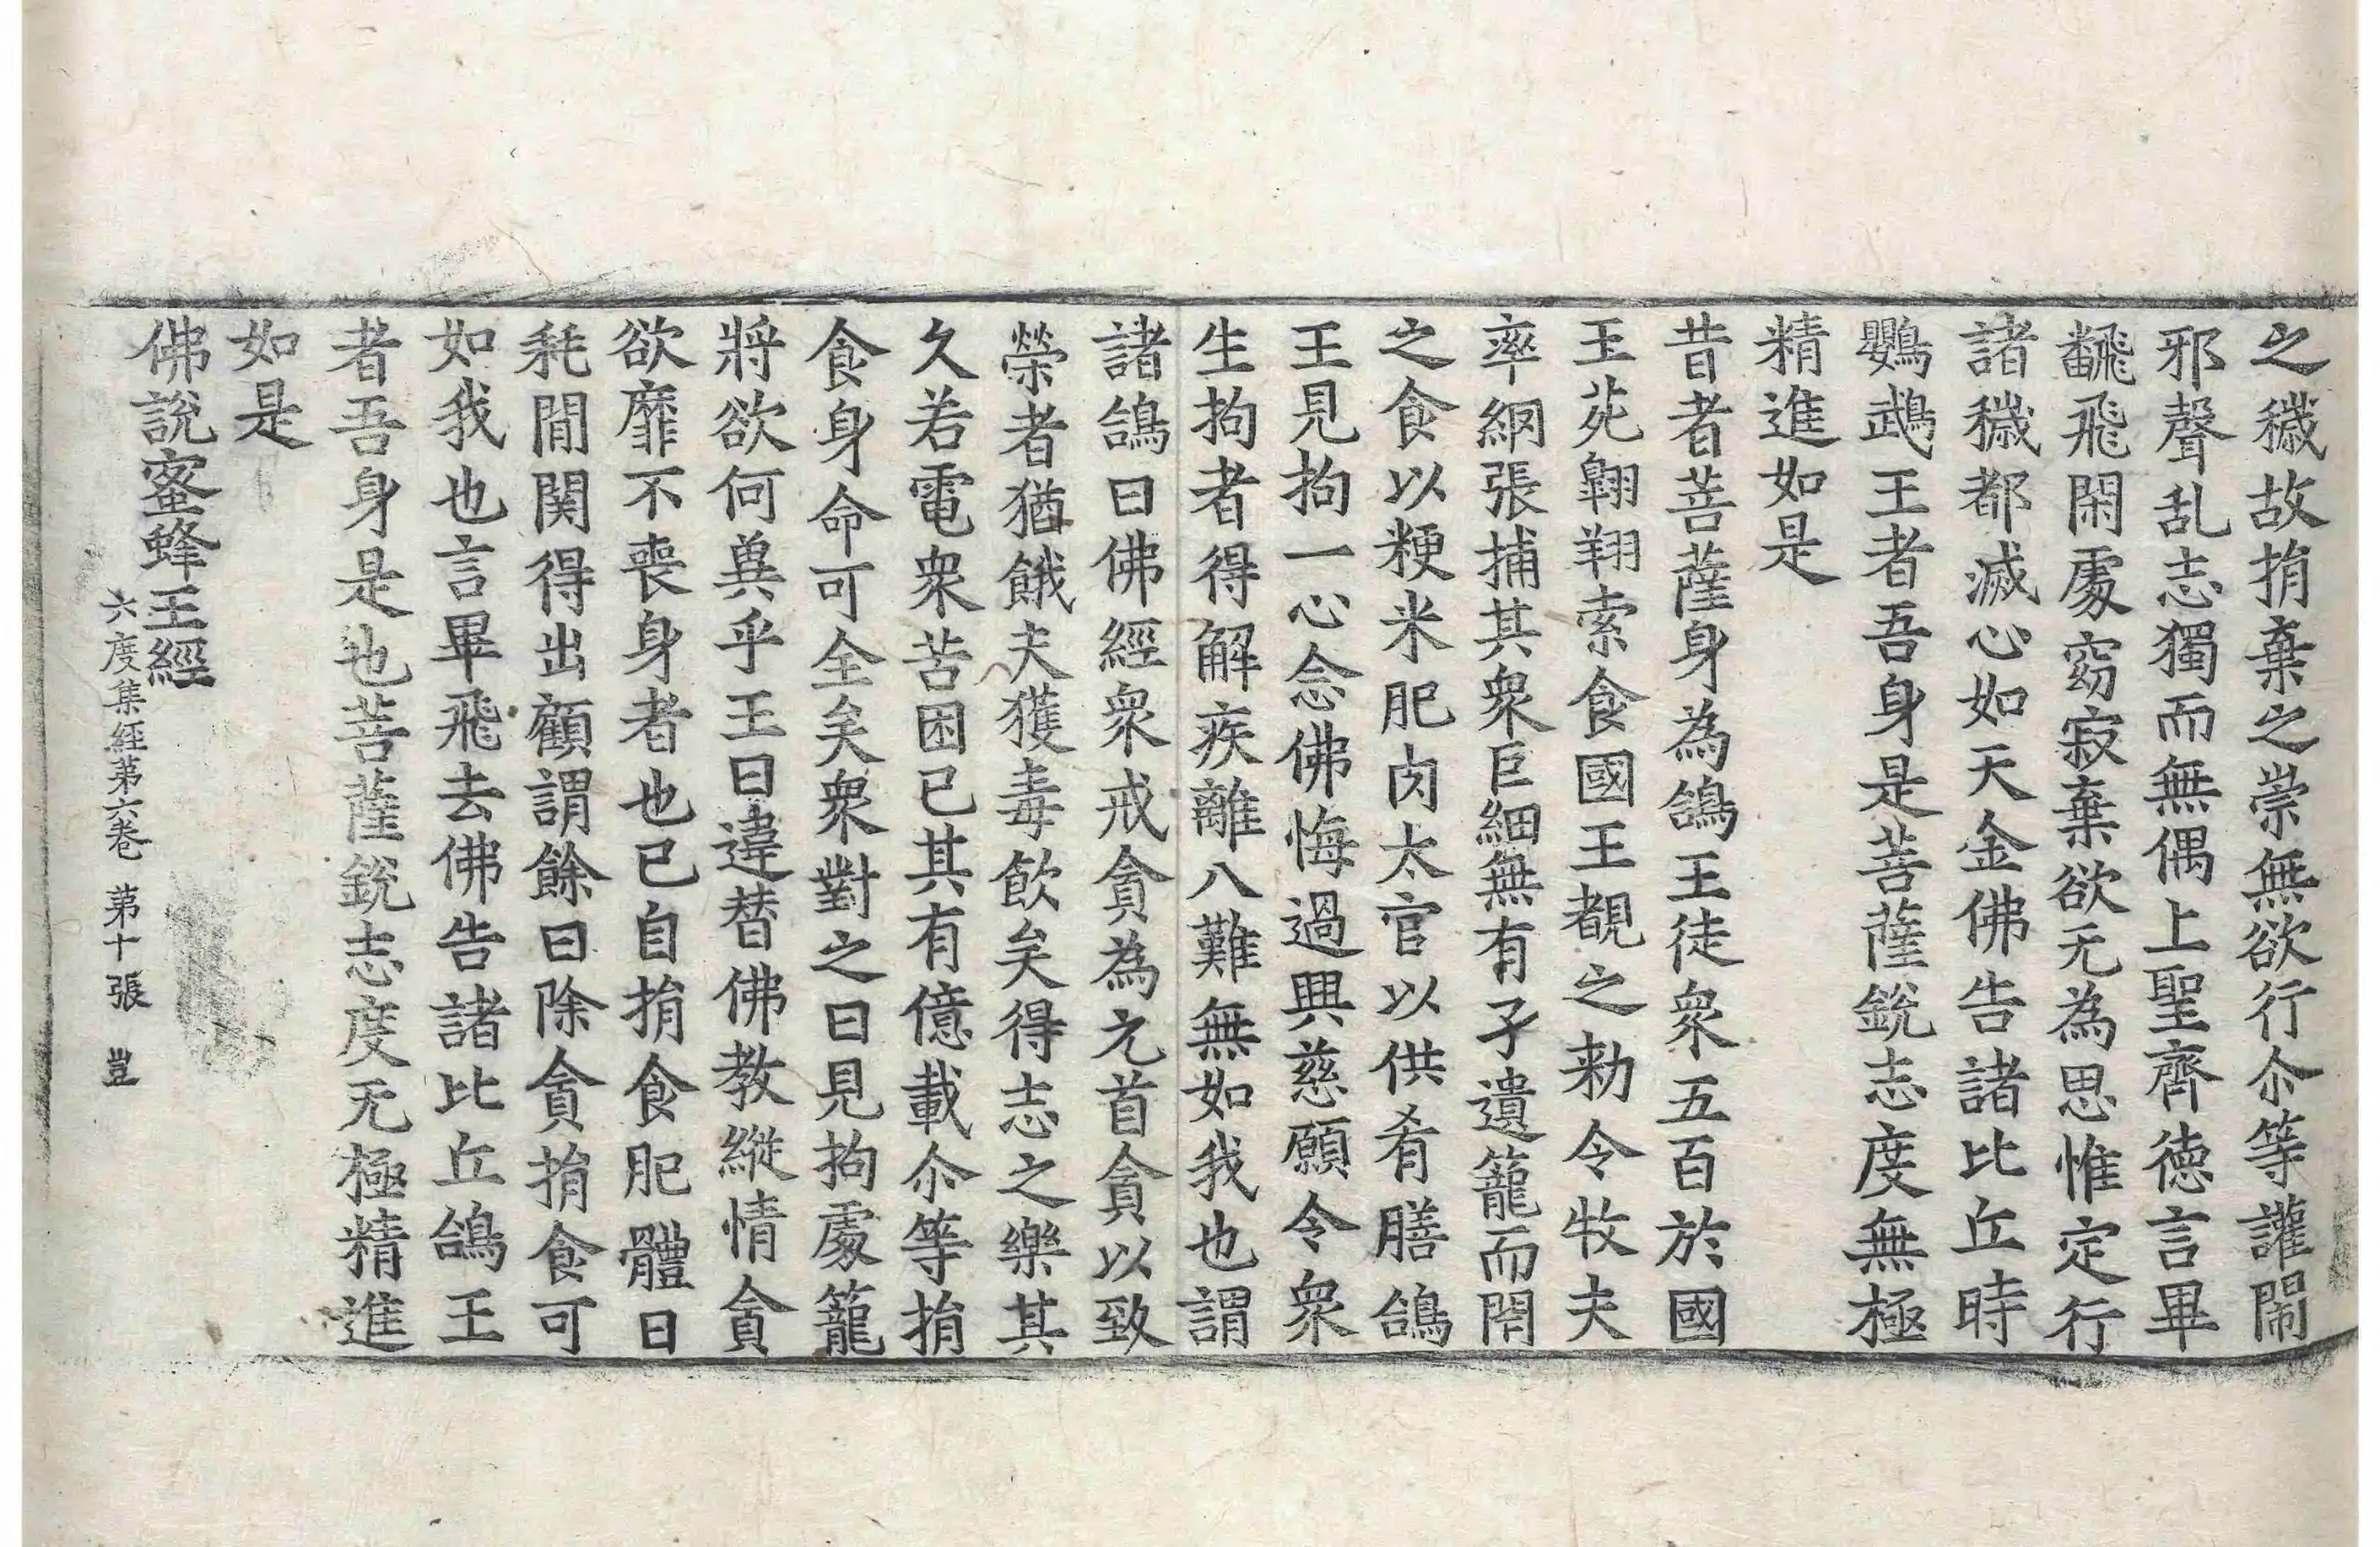 之穢故捐棄之崇無欲行尒等讙閙
邪聲乱志獨而無偶上聖齊德言畢
飜飛閑處窈寂棄欲无為思惟定行
諸穢都滅心如天金佛告諸比丘時
鸚鵡王者吾身是菩薩銳志度無極
精進如是
昔者菩薩身為鴿王徒衆五百於國
王苑翺翔索食國王覩之勑令牧夫
率網張捕其衆巨細無有孑遺籠而閇
之食以粳米肥肉太官以供肴膳鴿
王見拘一心念佛悔過興慈願令衆
生拘者得解疾離八難無如我也謂
諸鴿曰佛經衆戒貪為元首貪以致
榮者猶餓夫獲毒飲矣得志之樂其
久若電衆苦困已其有億載尒等捐
食身命可全矣衆對之曰見拘處籠
將欲何兾乎王曰違替佛教縱情貪
欲靡不喪身者也已自捐食肥體日
耗間関得出顧謂餘曰除貪捐食可
如我也言畢飛去佛告諸比丘鴿王
者吾身是也菩薩銳志度无極精進
如是
佛說蜜蜂王經
六度集經第六卷 第十張 豈